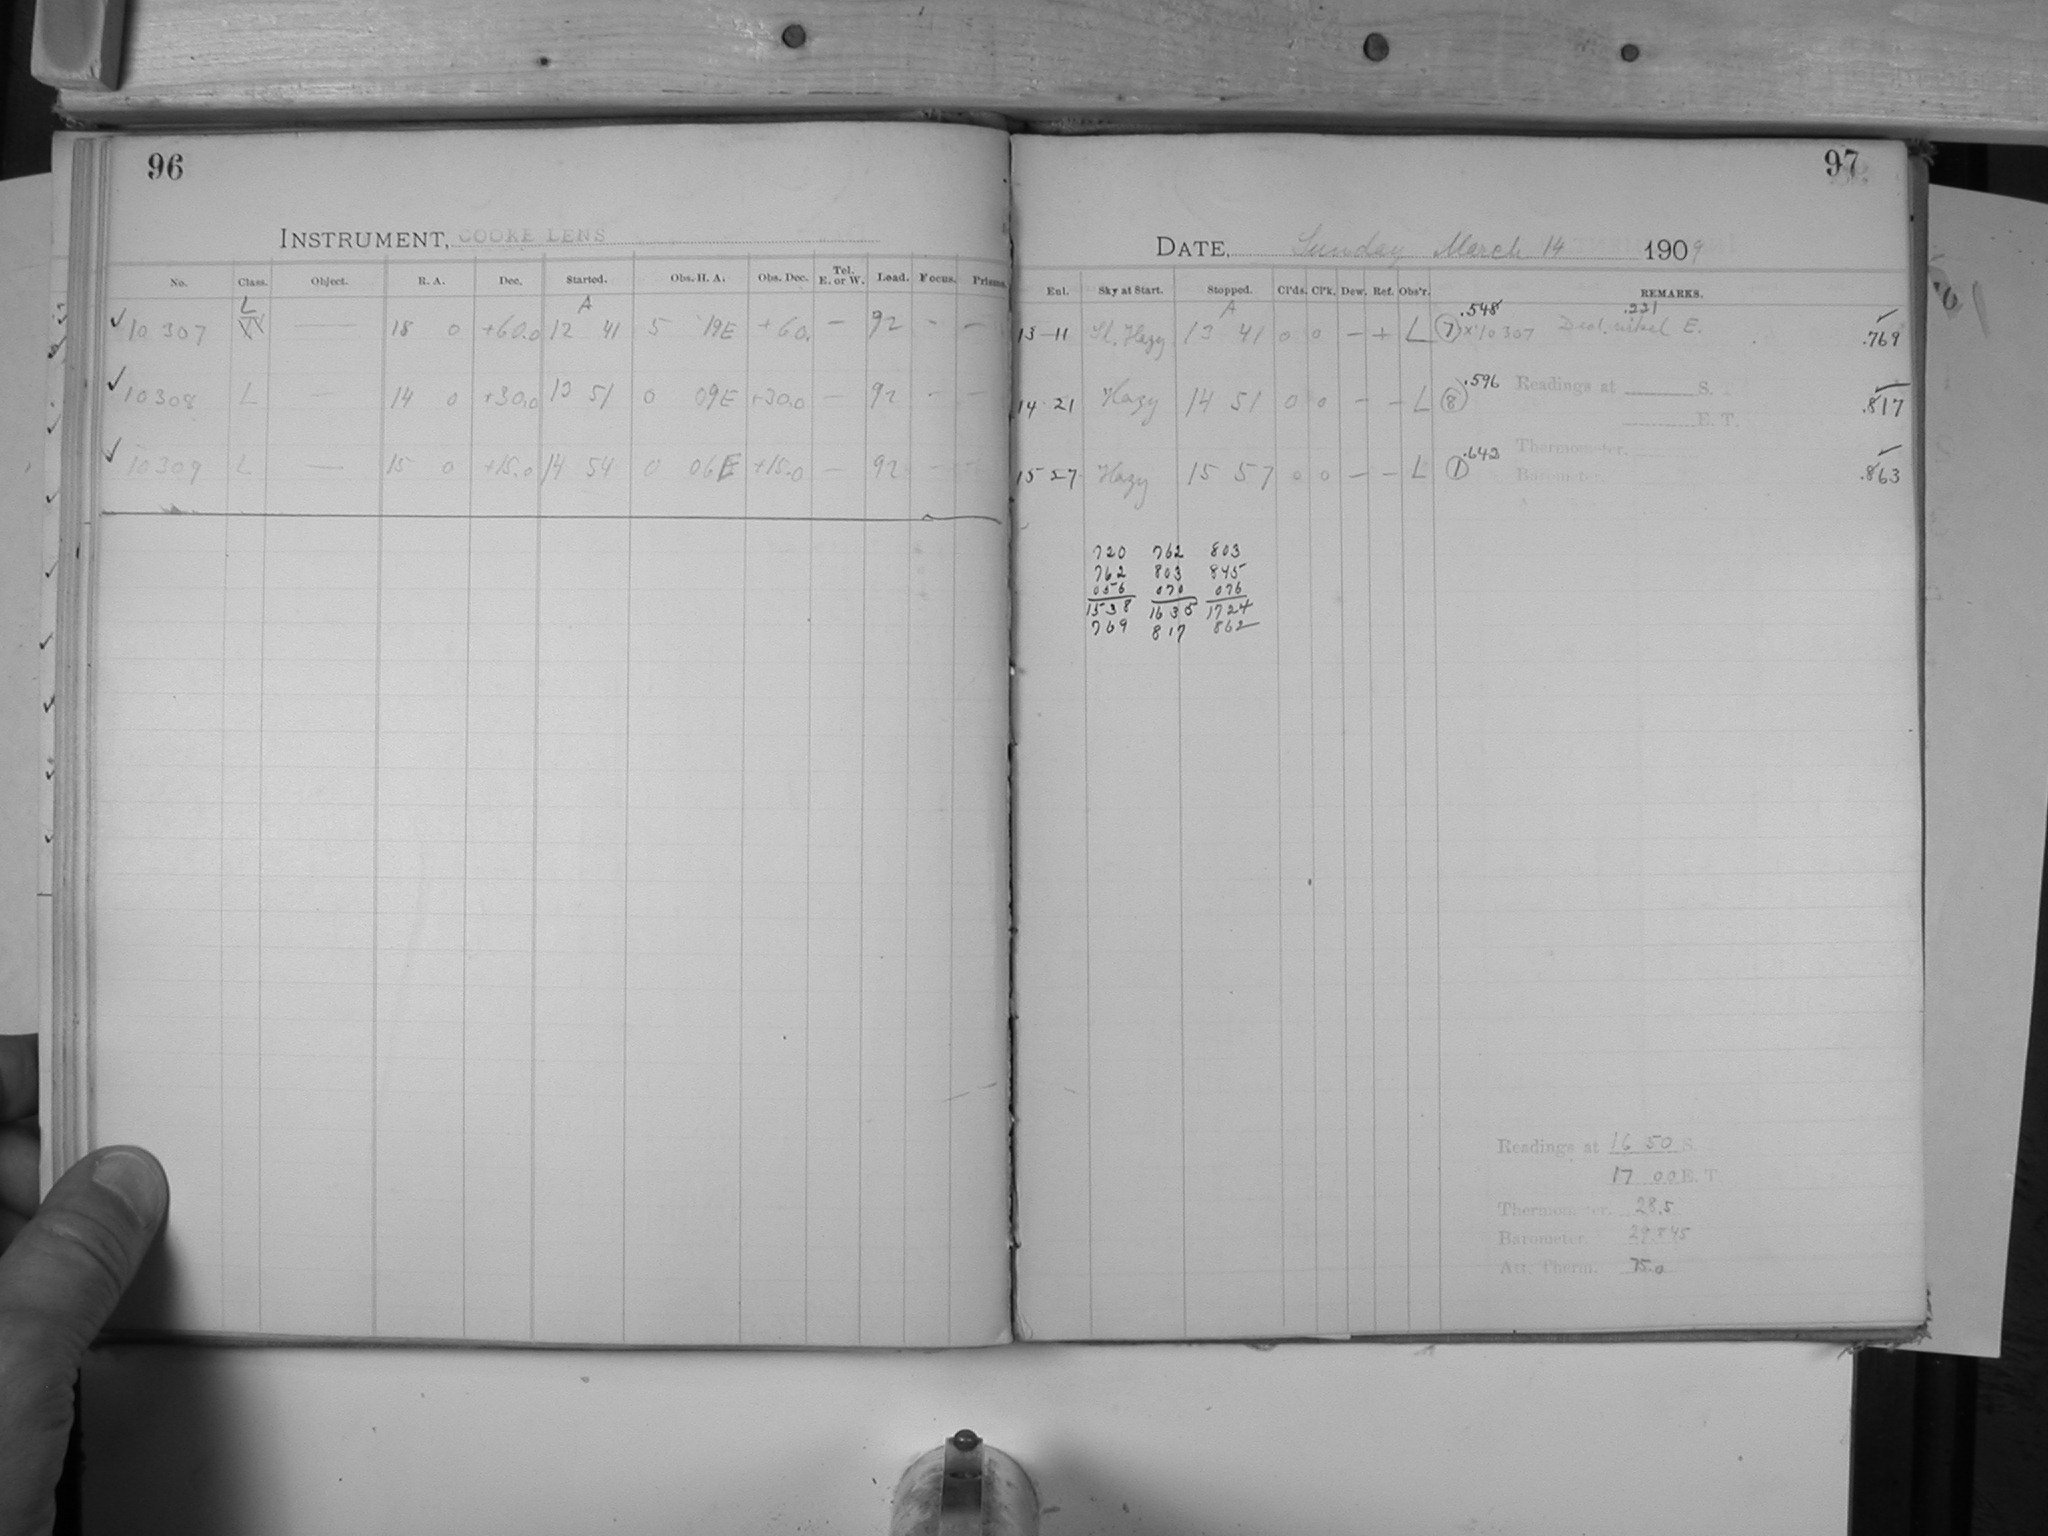 96
INSTRUMENT, COOKE LENS
No. Class. Object. R. A. Dec. Started. Obs. H. A. Obs. Dec. Tel. E. or W. Load. Focus. Prisms.
L A
✓ 10307 — 18 0 +60.0 12 41 5 19E +60. — 92 - —
✓ 10308 L — 14 0 +30.0 13 51 0 09E +30.0 — 92 - —
✓ 10309 L — 15 0 +15.0 14 54 0 06E +15.0 — 92 - —
97
DATE, Sunday March 14 1909
Ent. Sky at Start. Stopped. Cl'ds. Cl'k. Dew. Ref. Obs'r. REMARKS.
A .548 .221 ✓
13-11 Sl. Hazy 13 41 0 0 — + L (7) x 10307 E. .769
14-21 Hazy 14 51 0 0 - - L (8) .596 Readings at S. T. .817
E. T.
Thermometer.
15 27 Hazy 15 57 0 0 — — L (1) .642 Barometer. .863
720 762 803
762 803 845
056 070 076
1538 1635 1724
769 817 862
Readings at 16 50 S.
17 00 E. T.
Thermometer. 28.5
Barometer. 29.845
Att. Therm. 75.0